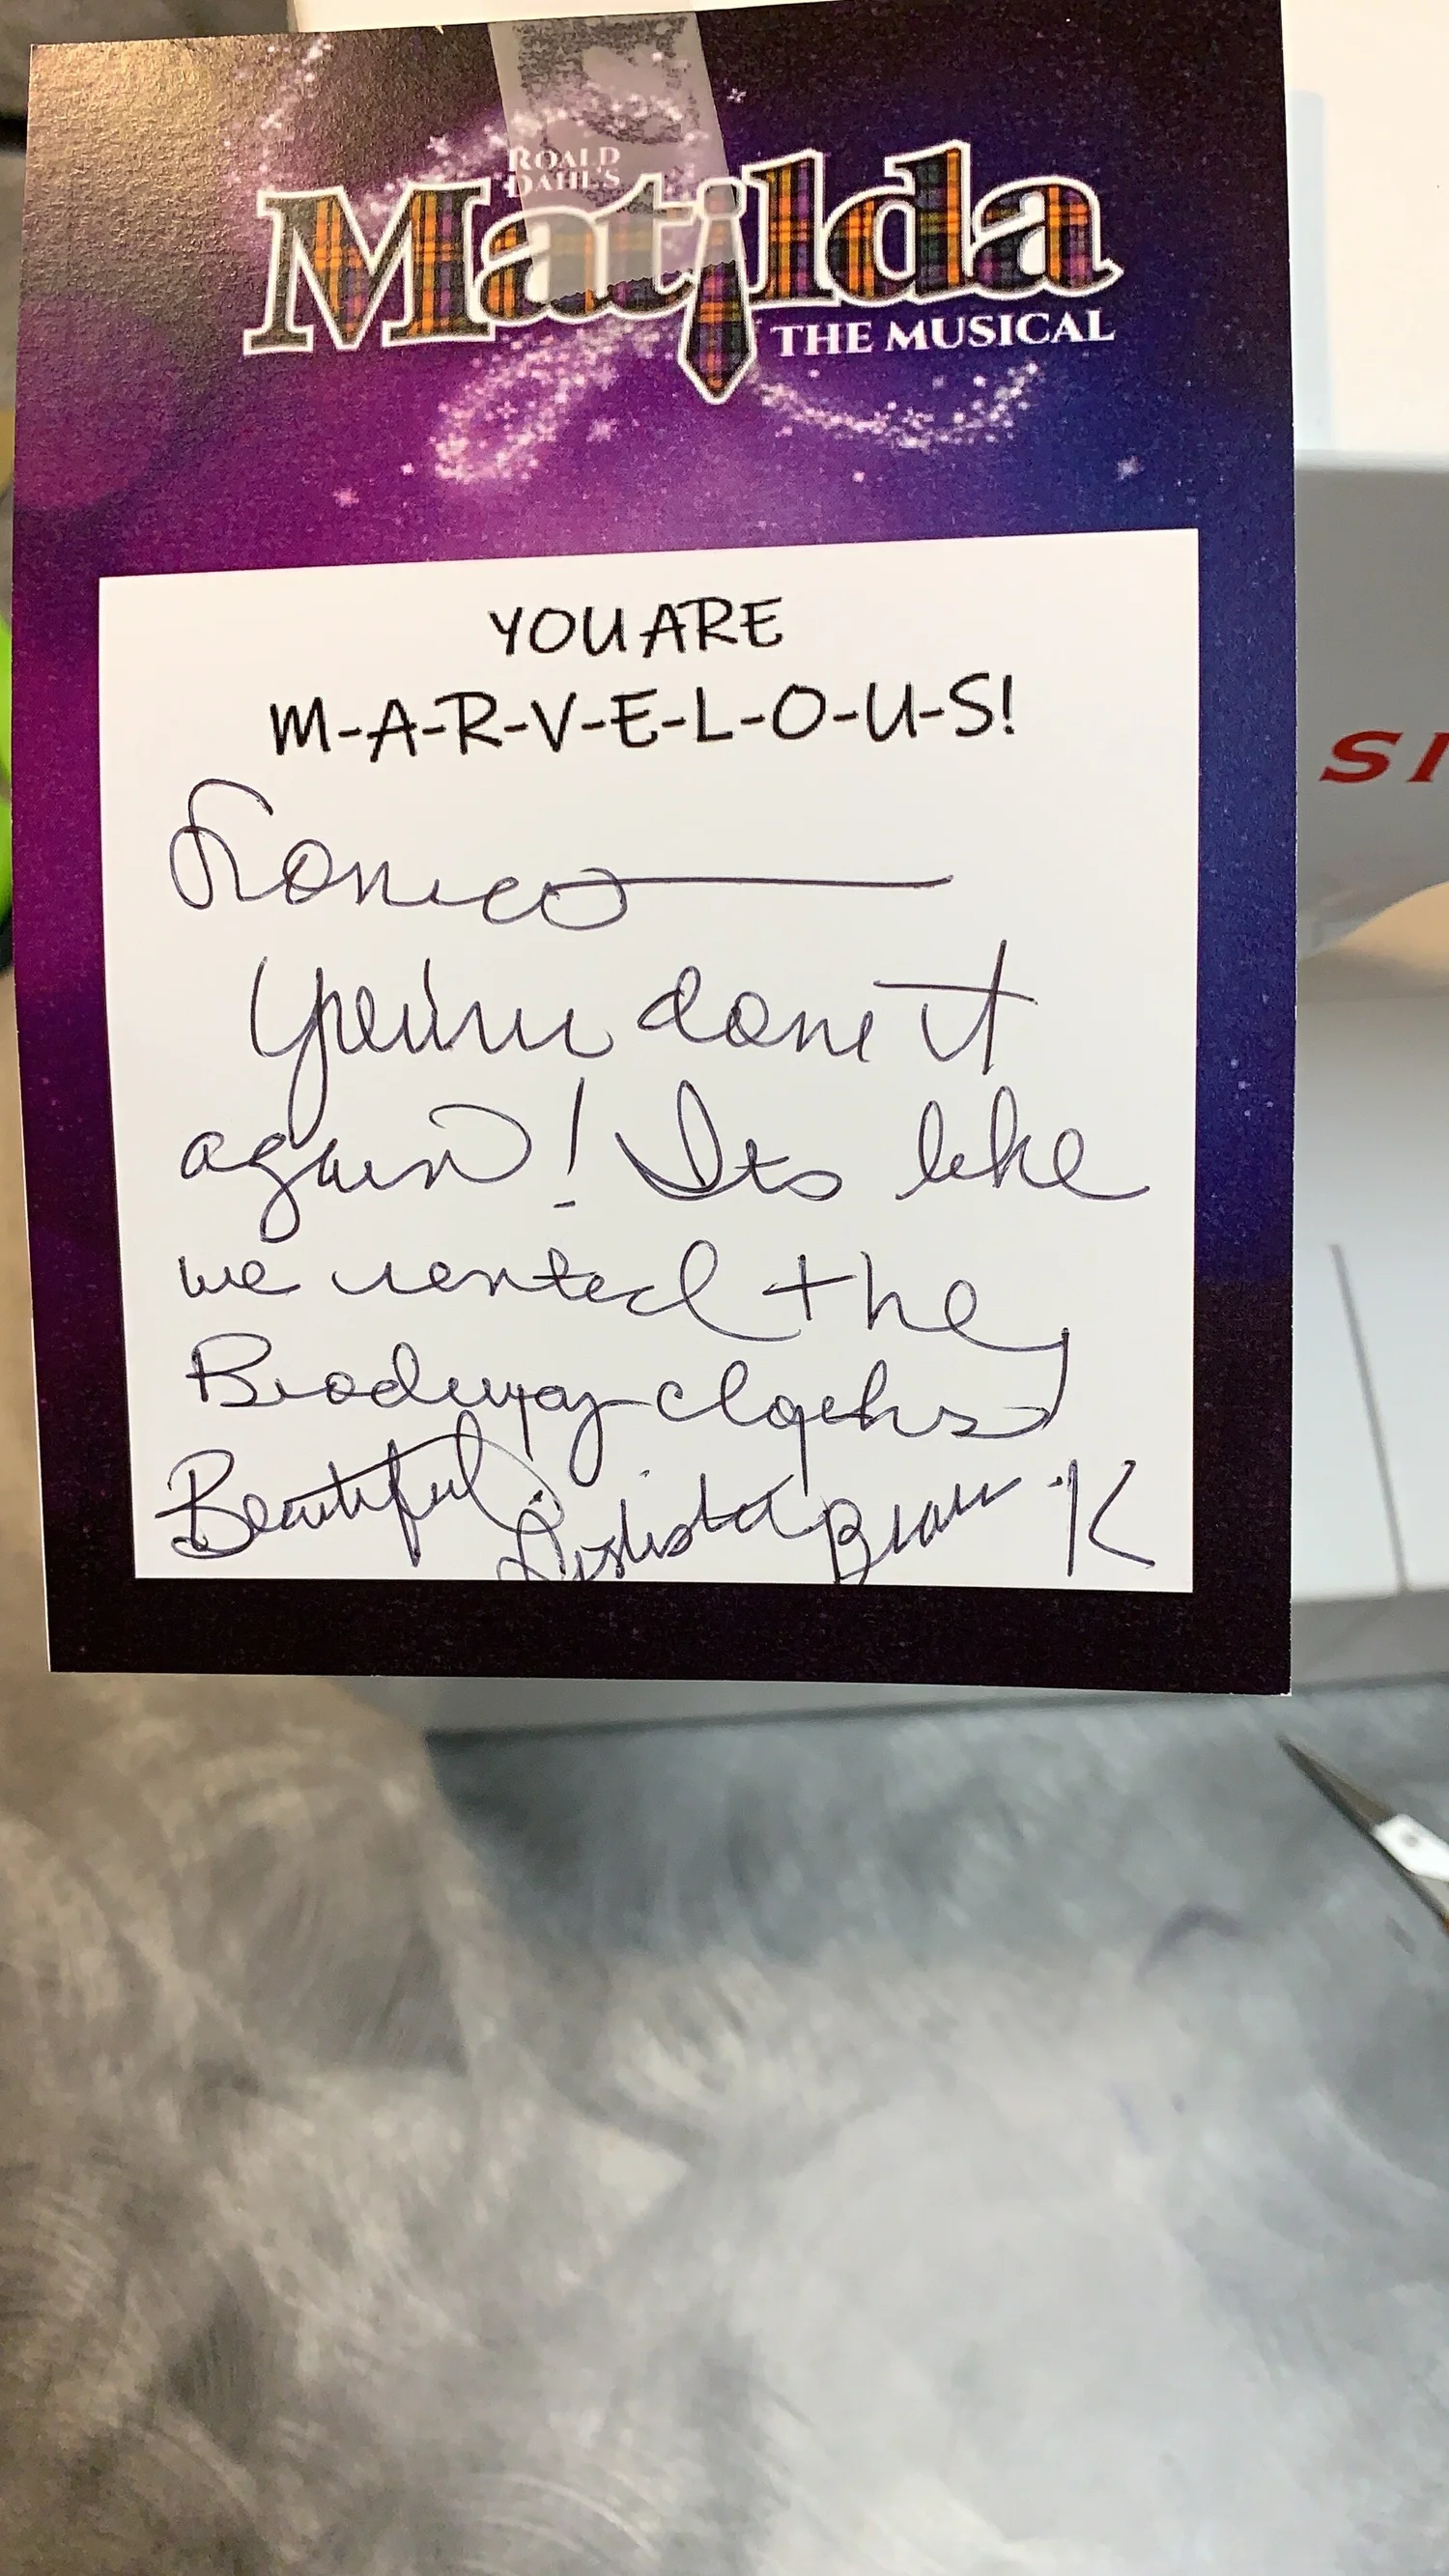 ROALD
DAHL'S
Matilda
THE MUSICAL
YOU ARE
M-A-R-V-E-L-O-U-S!
Romeo
You've done it
again! Its like
we rented the
Brodway
Beautiful
K
SI